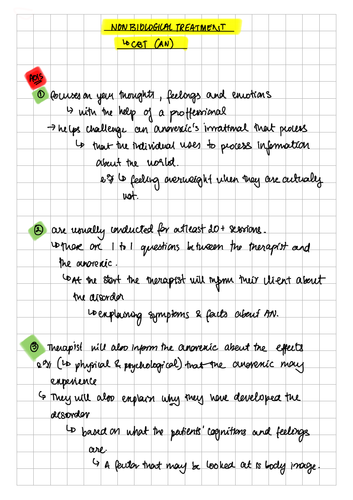 NON BIOLOGICAL TREATMENT
↳ CBT (AN)
① focuses on your thoughts, feelings and emotions
↳ with the help of a proffesional
→ helps challenge an anorexic's irrational that process
↳ that the individual uses to process information
about the world.
eg ↳ feeling overweight when they are actually
not.
② are usually conducted for atleast 20+ sessions.
↳ there are 1 to 1 questions between the therapist and
the anorexic.
↳ At the start the therapist will inform their client about
the disorder
↳ explaining symptoms & facts about AN.
③ Therapist will also inform the anorexic about the effects
eg (↳ physical & psychological) that the anorexic may
experience
↳ They will also explain why they have developed the
disorder
↳ based on what the patients' cognitions and feelings
are.
↳ A factor that may be looked at is body image.